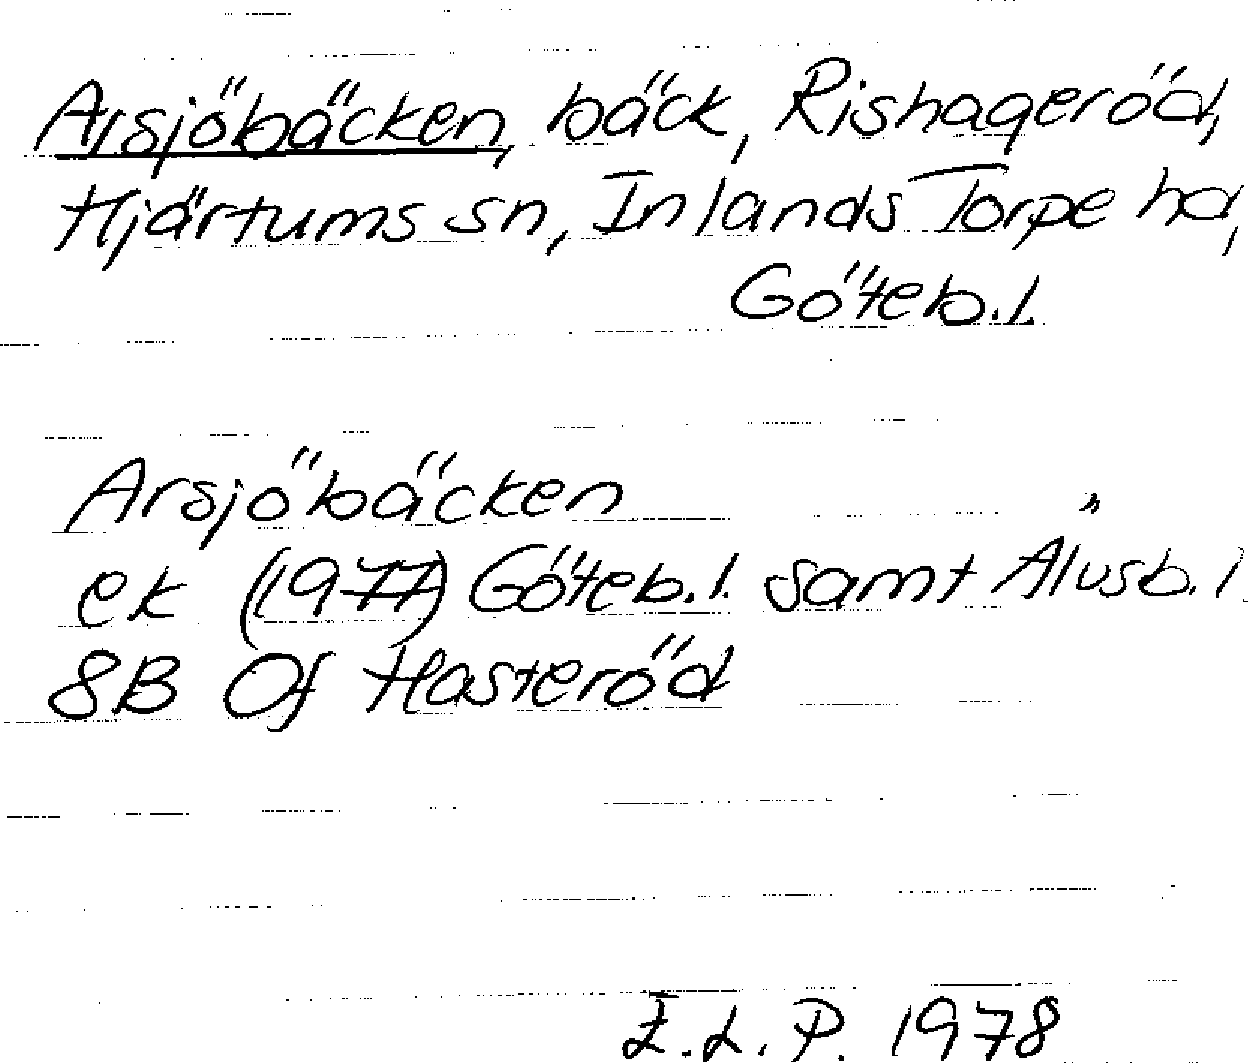 Arsjöbäcken, bäck, Rishageröd,
Hjärtums sn, Inlands Torpe hd,
Göteb.l.
Arsjöbäcken
ek (1977) Göteb.l. samt Älvsb.l.
8B 0f Hasteröd
E.L.P. 1978